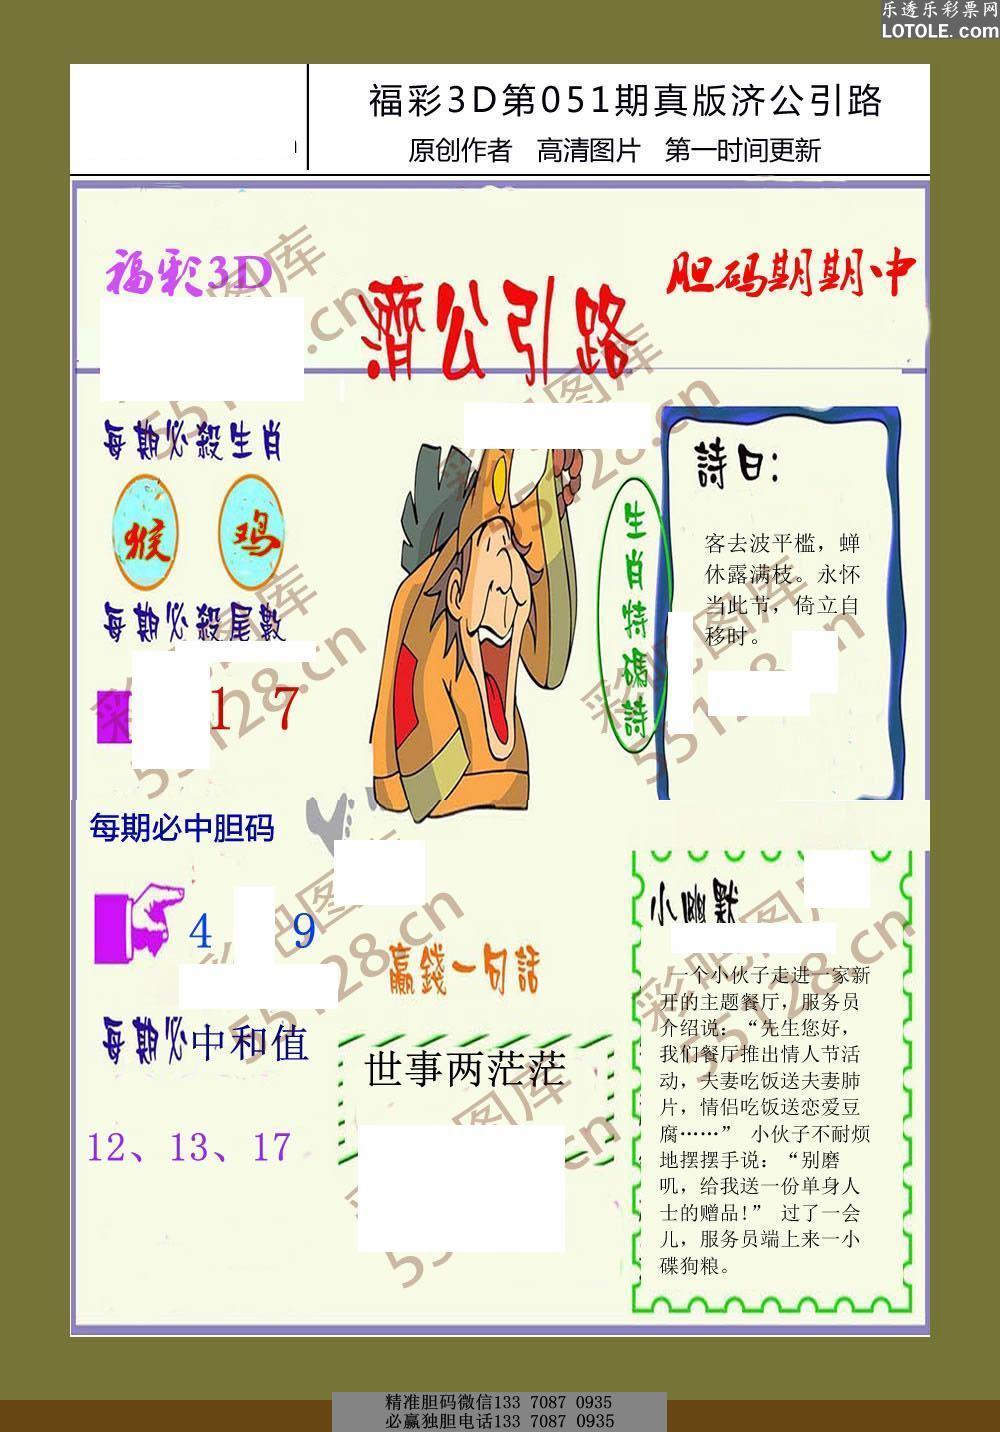 乐透乐彩票网
LOTOLE.com
福彩3D第051期真版济公引路
原创作者 高清图片 第一时间更新
福彩3D
濟公引路
胆码期期中
每期必殺生肖
猴 鸡
每期必殺尾數
1 7
生肖特碼詩
詩曰：
客去波平槛，蝉
休露满枝。永怀
当此节，倚立自
移时。
每期必中胆码
4 9
每期必中和值
12、13、17
贏錢一句話
世事两茫茫
小幽默
一个小伙子走进一家新
开的主题餐厅，服务员
介绍说：“先生您好，
我们餐厅推出情人节活
动，夫妻吃饭送夫妻肺
片，情侣吃饭送恋爱豆
腐……” 小伙子不耐烦
地摆摆手说：“别磨
叽，给我送一份单身人
士的赠品!” 过了一会
儿，服务员端上来一小
碟狗粮。
彩吧图库
55128.cn
彩吧图库
55128.cn
彩吧图库
55128.cn
彩吧图库
55128.cn
彩吧图库
55128.cn
精准胆码微信133 7087 0935
必赢独胆电话133 7087 0935